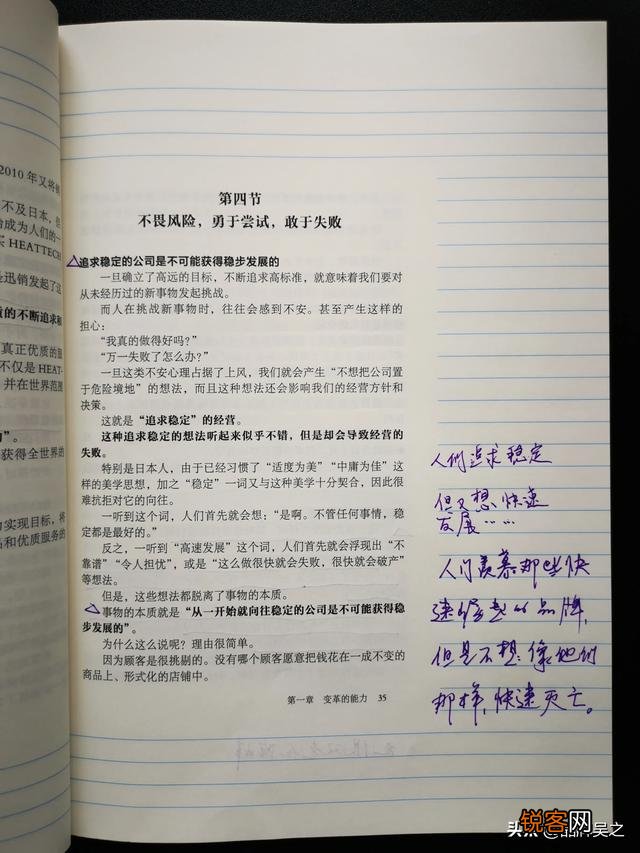 2010年又将
不及日本，但
始成为人们的一
买HEATTECH
是迅销发起了这
的不断追求和
真正优质的服
不仅是HEAT-
并在世界范围
”。
获得全世界的
实现目标，将
品和优质服务的
第四节
不畏风险，勇于尝试，敢于失败
△追求稳定的公司是不可能获得稳步发展的
一旦确立了高远的目标，不断追求高标准，就意味着我们要对
从未经历过的新事物发起挑战。
而人在挑战新事物时，往往会感到不安。甚至产生这样的
担心：
“我真的做得好吗？”
“万一失败了怎么办？”
一旦这类不安心理占据了上风，我们就会产生“不想把公司置
于危险境地”的想法，而且这种想法还会影响我们的经营方针和
决策。
这就是“追求稳定”的经营。
这种追求稳定的想法听起来似乎不错，但是却会导致经营的
失败。
特别是日本人，由于已经习惯了“适度为美”“中庸为佳”这
样的美学思想，加之“稳定”一词又与这种美学十分契合，因此很
难抗拒对它的向往。
一听到这个词，人们首先就会想：“是啊。不管任何事情，稳
定都是最好的。”
反之，一听到“高速发展”这个词，人们首先就会浮现出“不
靠谱”“令人担忧”，或是“这么做很快就会失败，很快就会破产”
等想法。
但是，这些想法都脱离了事物的本质。
△事物的本质就是“从一开始就向往稳定的公司是不可能获得稳
步发展的”。
为什么这么说呢？理由很简单。
因为顾客是很挑剔的。没有哪个顾客愿意把钱花在一成不变的
商品上、形式化的店铺中。
第一章 变革的能力 35
人们追求稳定
但又想快速
发展……
人们羡慕那些快
速崛起的品牌，
但是不想像他们
那样，快速灭亡。
头条@品牌吴之
锐客网